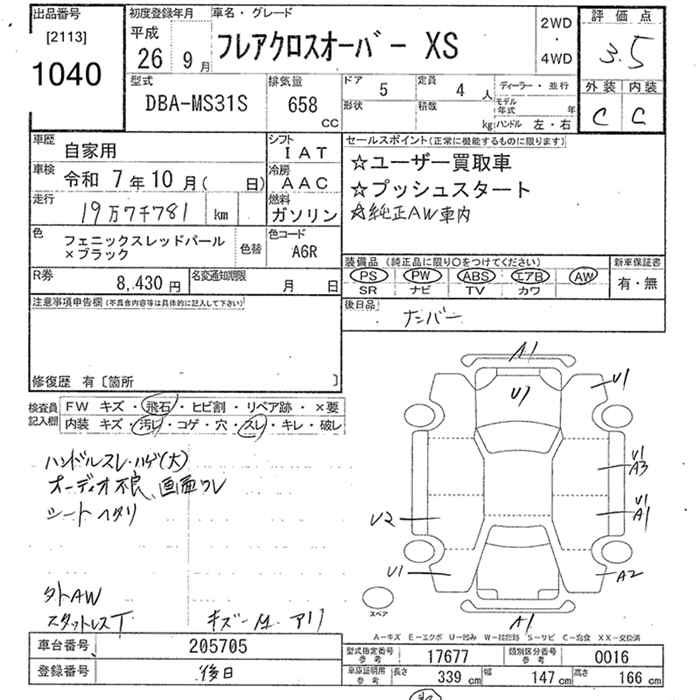 出品番号 初度登録年月 車名・グレード 2WD ・ 4WD 評価点
[2113] 平成
1040 26年 9月 フレアクロスオーバー XS 3.5
型式 排気量 ドア 5 定員 4人 ディーラー・並行 外装 内装
DBA-MS31S 658 CC 形状 積数 kg モデル年式 年 ハンドル 左・右 C C
車歴 自家用 シフト IAT セールスポイント(正常に機能するものに限ります)
車検 令和 7年10月( 日) 冷房 AAC ☆ユーザー買取車
☆プッシュスタート
走行 19万7千781 km 燃料 ガソリン ☆純正AW車内
色 フェニックスレッドパール 色替 色コード
×ブラック A6R
装備品(純正品に限り○をつけてください) 新車保証書
PS PW ABS エアB AW 有・無
SR ナビ TV カワ
R券 8,430円 名変通知期限 月 日
後日品 ナンバー
注意事項申告欄(不具合内容等は具体的に記入して下さい)
修復歴 有〔箇所 〕
検査員記入欄 FW キズ・飛石・ヒビ割・リペア跡・×要
内装 キズ・汚レ・コゲ・穴・スレ・キレ・破レ
A1
U7 U1
ハンドルスレ・ハゲ(大)
オーディオ不良、画面ワレ
シートヘタリ
U1 A3
U2 U1 A1
U1 A2
スペア
A1
外AW
スタットレスT キズ・凹 アリ
A-キズ E-エクボ U-凹み W-板起跡 S-サビ C-腐食 XX-交換済
車台番号 205705
登録番号 後日
型式指定番号 参考 17677 類別区分番号 参考 0016
車庫証明用 参考 長さ 339 cm 幅 147 cm 高さ 166 cm